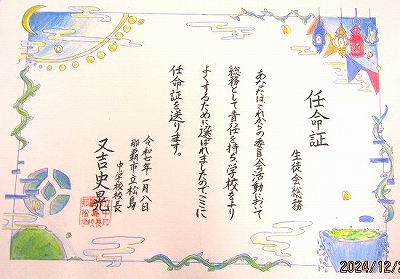 任命証
生徒会総務
あなたは、これからの委員会活動において
総務として責任を持ち、学校をより
よくするために選ばれましたのでここに
任命証を送ります。
令和七年一月八日
那覇市立松島
中学校校長
又吉史晃
2024/12/